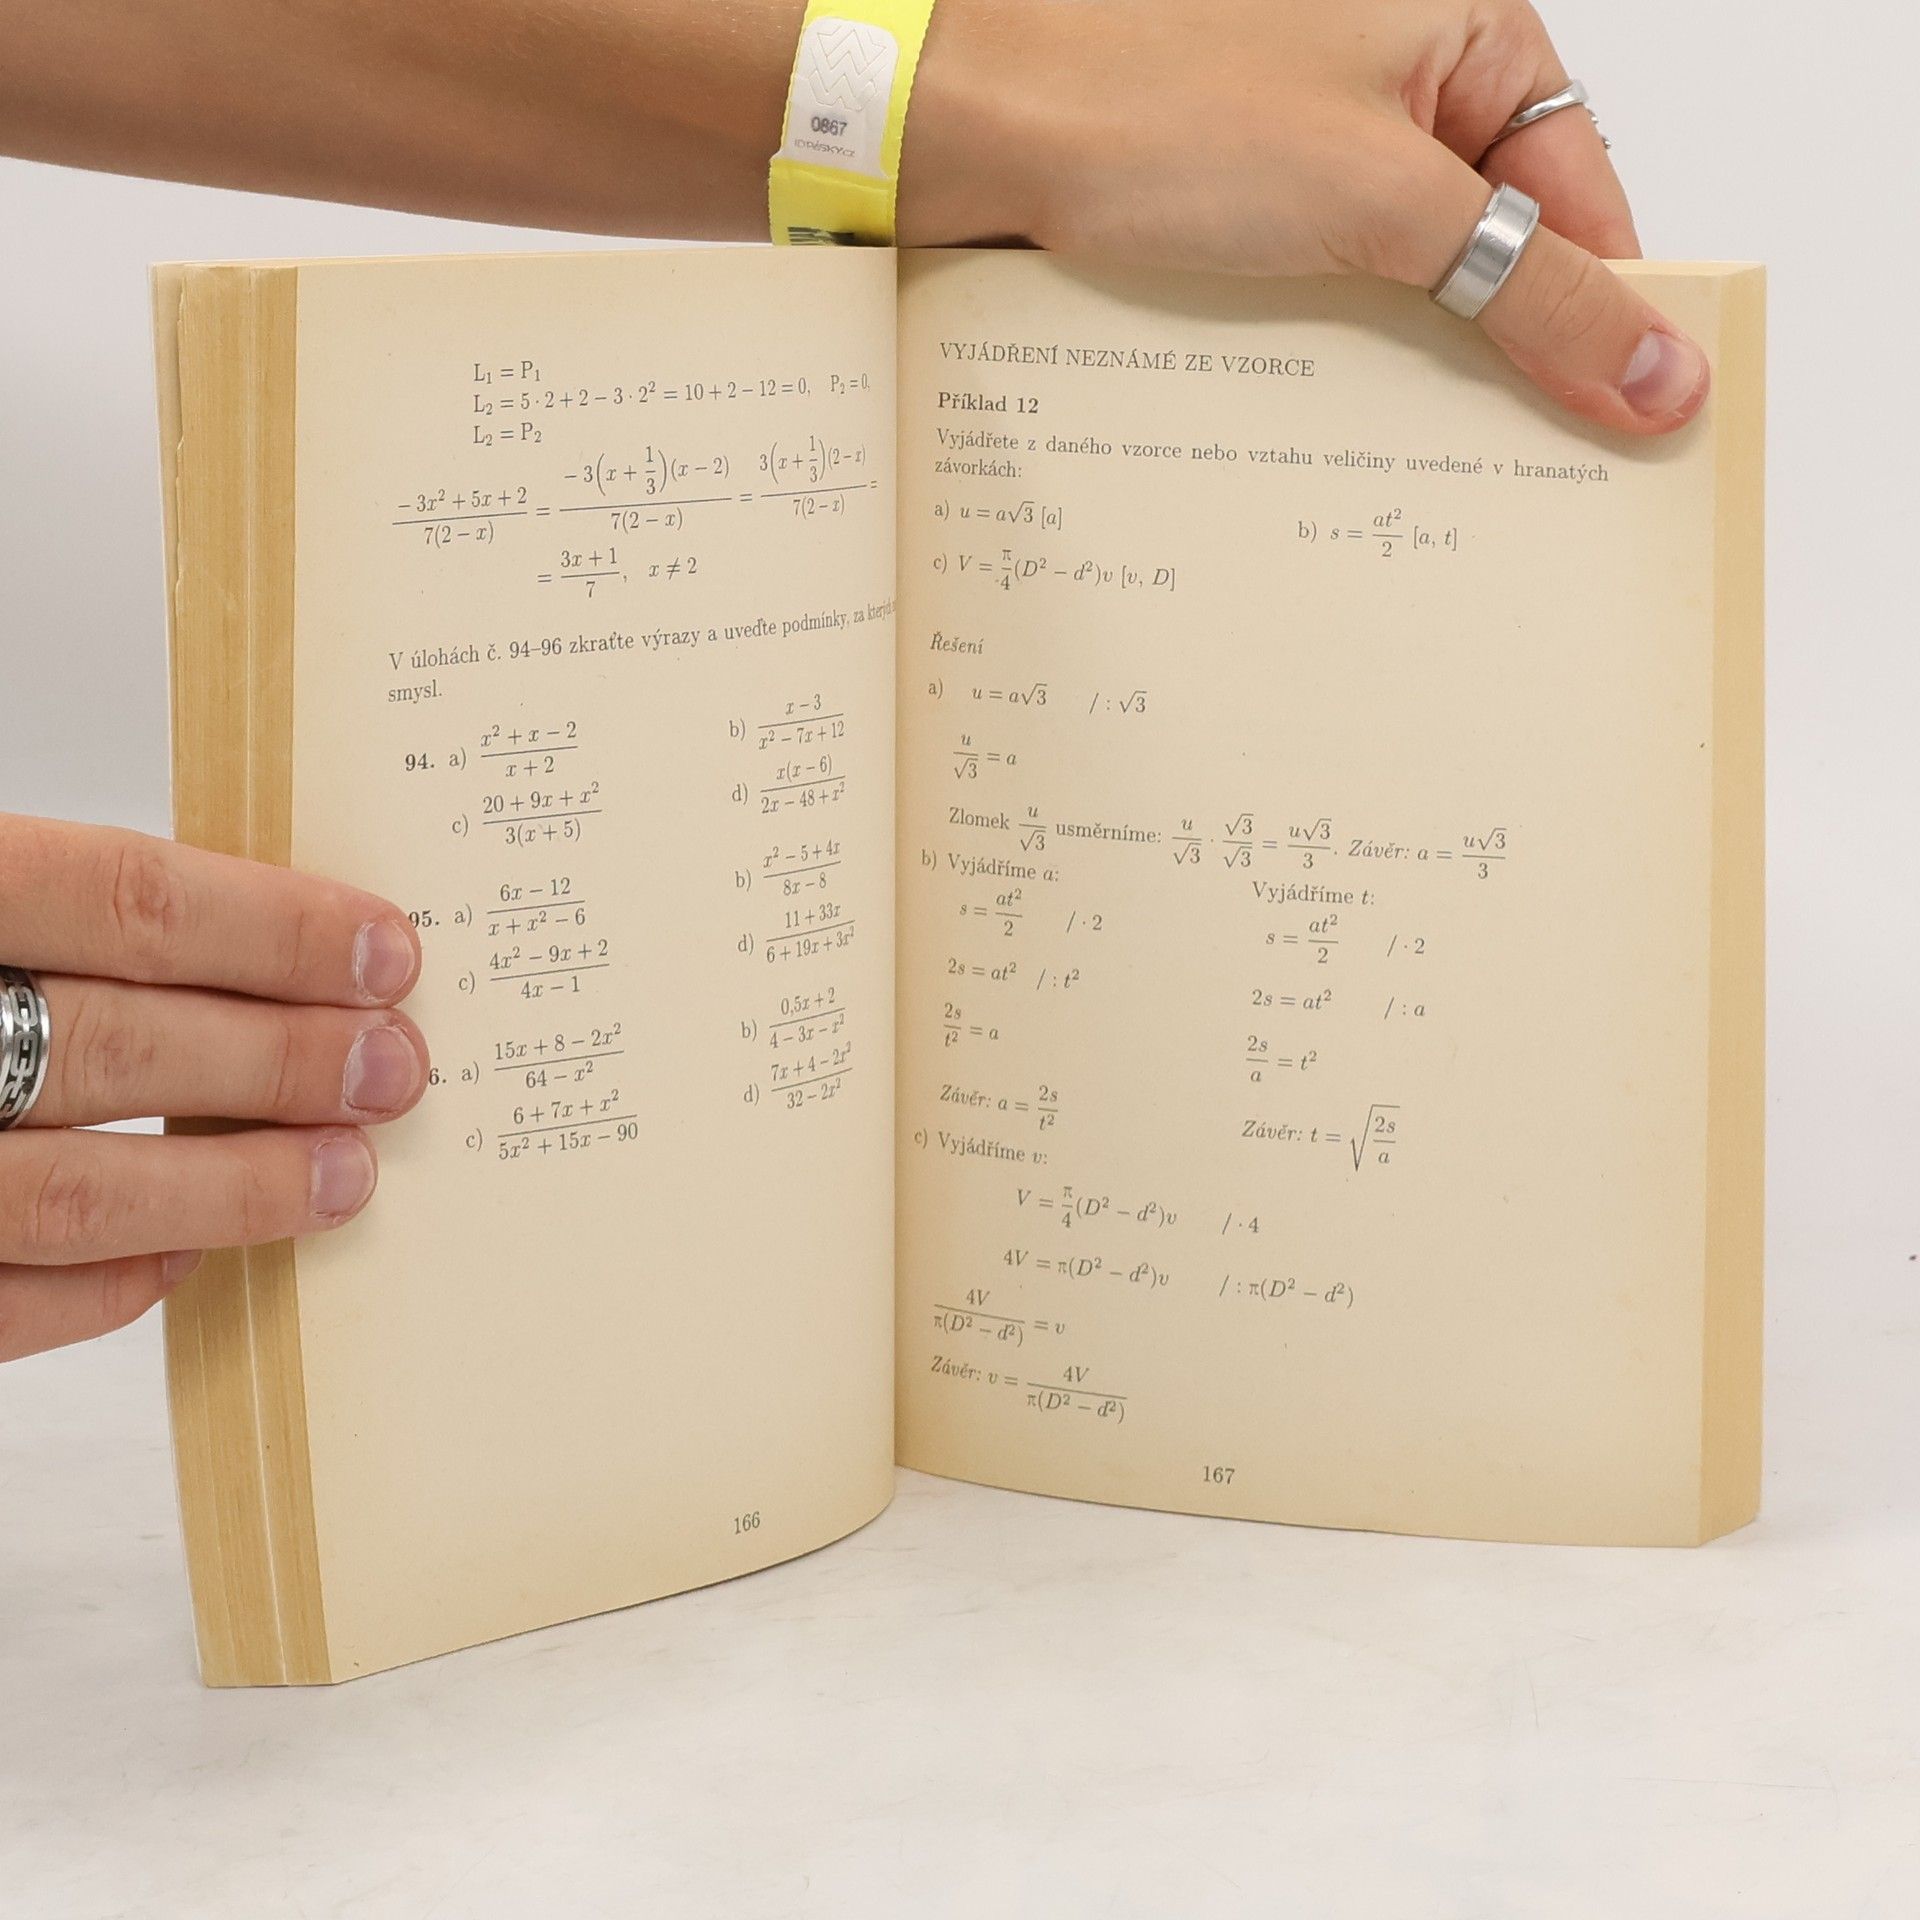 0867
IDPÁSKY.cz
L₁ = P₁
L₂ = 5 · 2 + 2 − 3 · 2² = 10 + 2 − 12 = 0, P₂ = 0,
L₂ = P₂
(−3x² + 5x + 2)/(7(2 − x)) = (−3(x + 1/3)(x − 2))/(7(2 − x)) = (3(x + 1/3)(2 − x))/(7(2 − x)) =
= (3x + 1)/7, x ≠ 2
V úlohách č. 94–96 zkraťte výrazy a uveďte podmínky, za
smysl.
94. a) (x² + x − 2)/(x + 2) b) (x − 3)/(x² − 7x + 12)
c) (20 + 9x + x²)/(3(x + 5)) d) (x(x − 6))/(2x − 48 + x²)
95. a) (6x − 12)/(x + x² − 6) b) (x² − 5 + 4x)/(8x − 8)
c) (4x² − 9x + 2)/(4x − 1) d) (11 + 33x)/(6 + 19x + 3x²)
6. a) (15x + 8 − 2x²)/(64 − x²) b) (0,5x + 2)/(4 − 3x − x²)
c) (6 + 7x + x²)/(5x² + 15x − 90) d) (7x + 4 − 2x²)/(32 − 2x²)
166
VYJÁDŘENÍ NEZNÁMÉ ZE VZORCE
Příklad 12
Vyjádřete z daného vzorce nebo vztahu veličiny uvedené v hranatých
závorkách:
a) u = a√3 [a] b) s = at²/2 [a, t]
c) V = π/4(D² − d²)v [v, D]
Řešení
a) u = a√3 / : √3
u/√3 = a
Zlomek u/√3 usměrníme: u/√3 · √3/√3 = u√3/3. Závěr: a = u√3/3
b) Vyjádříme a: Vyjádříme t:
s = at²/2 / · 2 s = at²/2 / · 2
2s = at² / : t² 2s = at² / : a
2s/t² = a 2s/a = t²
Závěr: a = 2s/t² Závěr: t = √(2s/a)
c) Vyjádříme v:
V = π/4(D² − d²)v / · 4
4V = π(D² − d²)v / : π(D² − d²)
4V/(π(D² − d²)) = v
Závěr: v = 4V/(π(D² − d²))
167